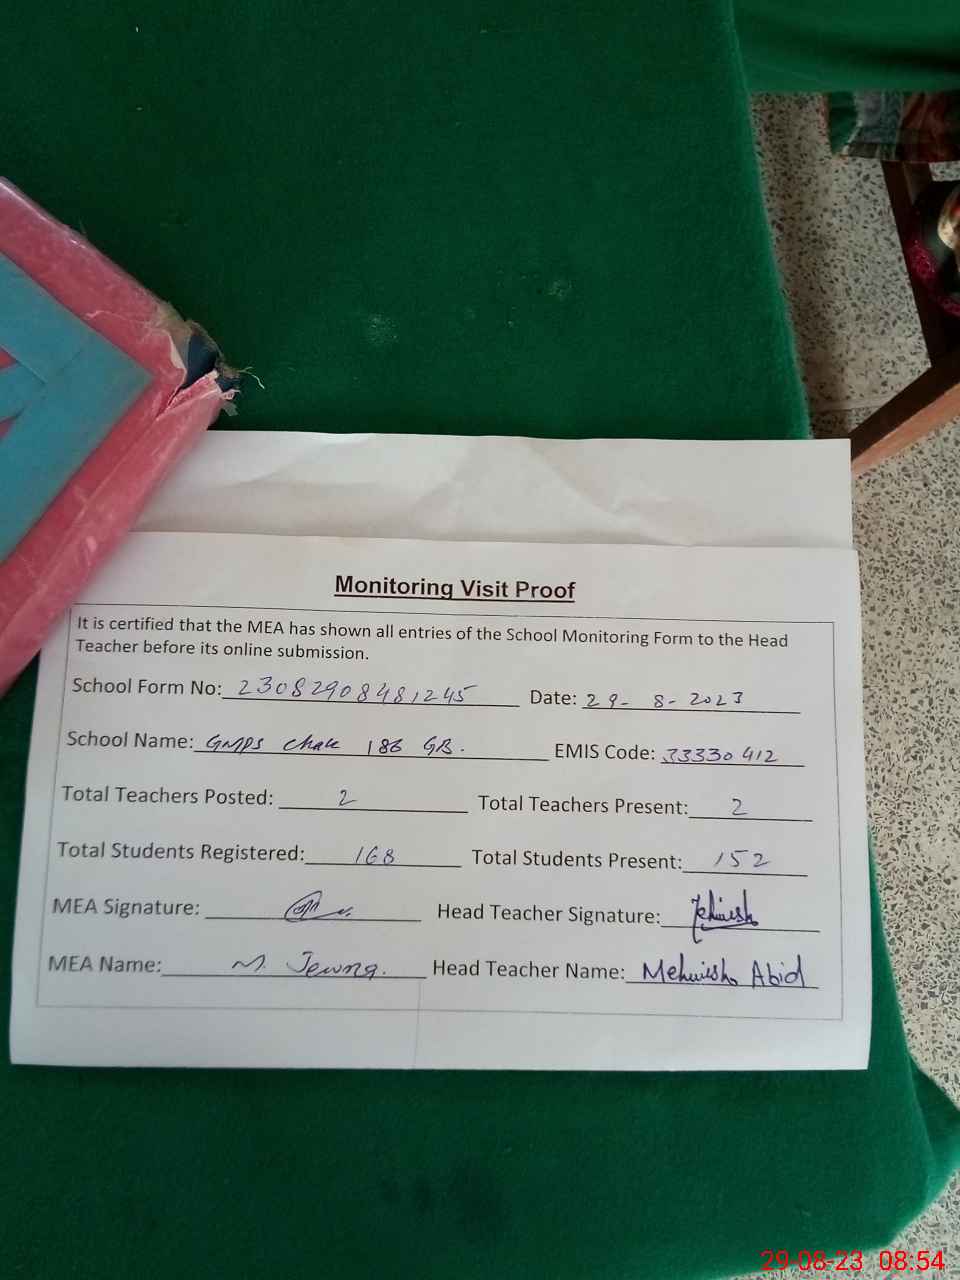 Monitoring Visit Proof
It is certified that the MEA has shown all entries of the School Monitoring Form to the Head
Teacher before its online submission.
School Form No: 23082908481245 Date: 29-8-2023
School Name: GMPS Chak 186 GB. EMIS Code: 33330412
Total Teachers Posted: 2 Total Teachers Present: 2
Total Students Registered: 168 Total Students Present: 152
MEA Signature: Head Teacher Signature:
MEA Name: M. Head Teacher Name: Mehwish Abid
29-08-23 08:54